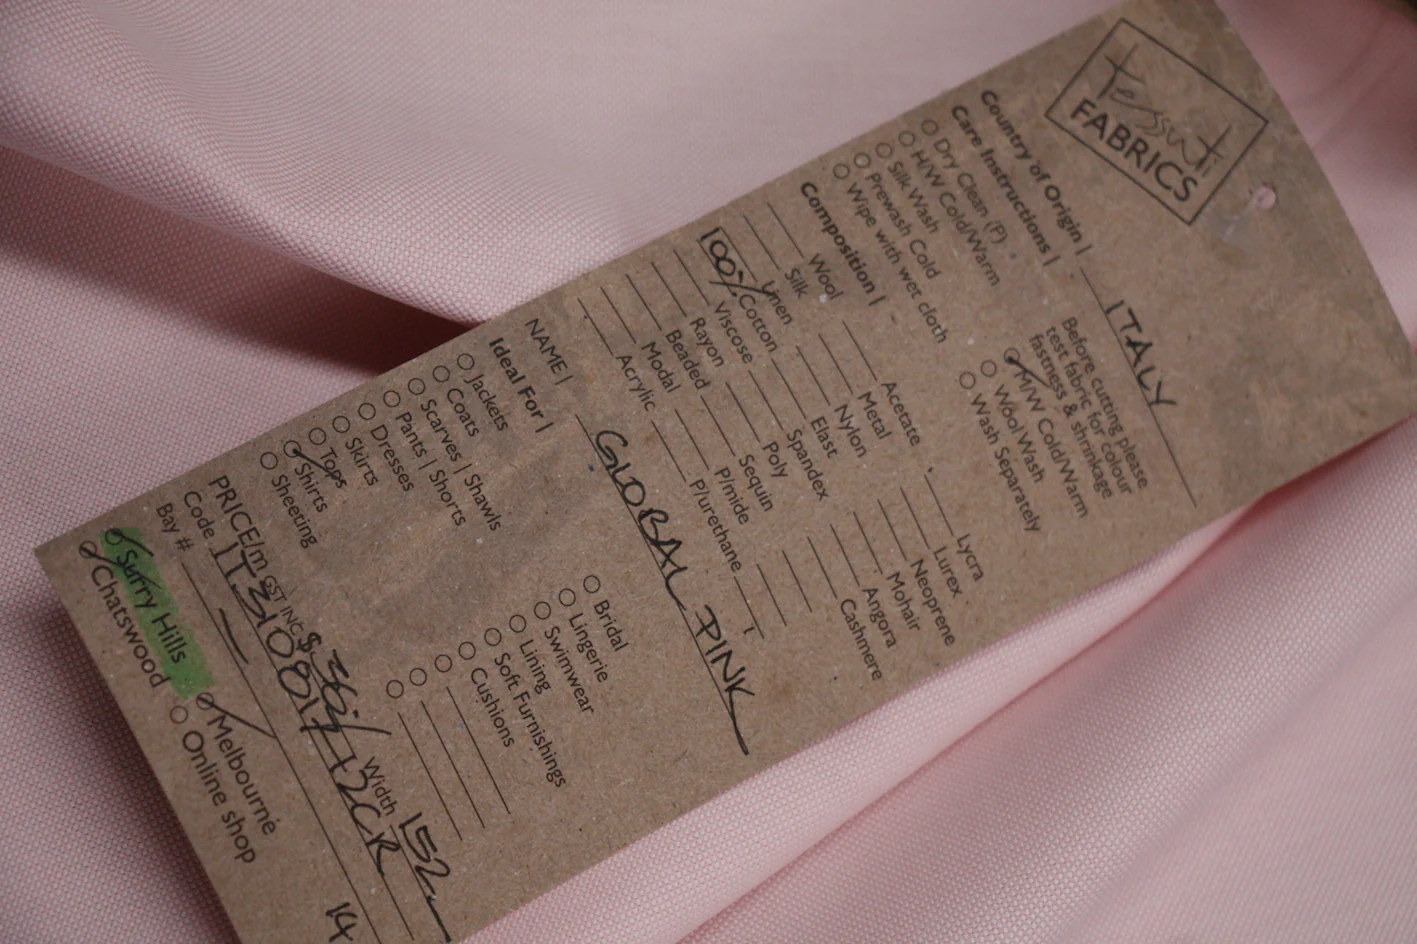 tessuti
FABRICS
Country of Origin | ITALY
Care Instructions |
Before cutting please
test fabric for colour
fastness & shrinkage
Dry Clean (P)
H/W Cold/Warm
Silk Wash
Prewash Cold
Wipe with wet cloth
M/W Cold/Warm
Wool Wash
Wash Separately
Composition |
Wool
Silk
Linen
100% Cotton
Viscose
Rayon
Beaded
Modal
Acrylic
Acetate
Metal
Nylon
Elast
Spandex
Poly
Sequin
P/mide
P/urethane
Lycra
Lurex
Neoprene
Mohair
Angora
Cashmere
NAME | GLOBAL PINK
Ideal For |
Jackets
Coats
Scarves | Shawls
Pants | Shorts
Dresses
Skirts
Tops
Shirts
Sheeting
Bridal
Lingerie
Swimwear
Lining
Soft Furnishings
Cushions
PRICE/m GST INC $ Width 152
Code
Bay #
Surry Hills
Melbourne
Chatswood
Online shop